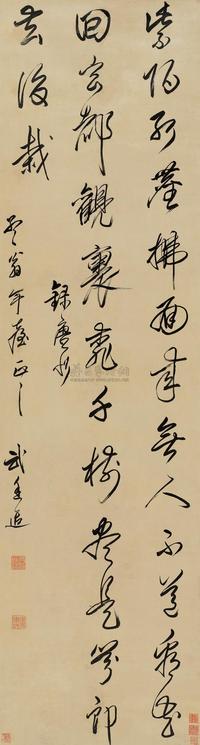 紫陌紅塵拂面來無人不道看花
回玄都觀裏桃千樹盡是劉郎
去後栽
錄唐
翁年臺正之